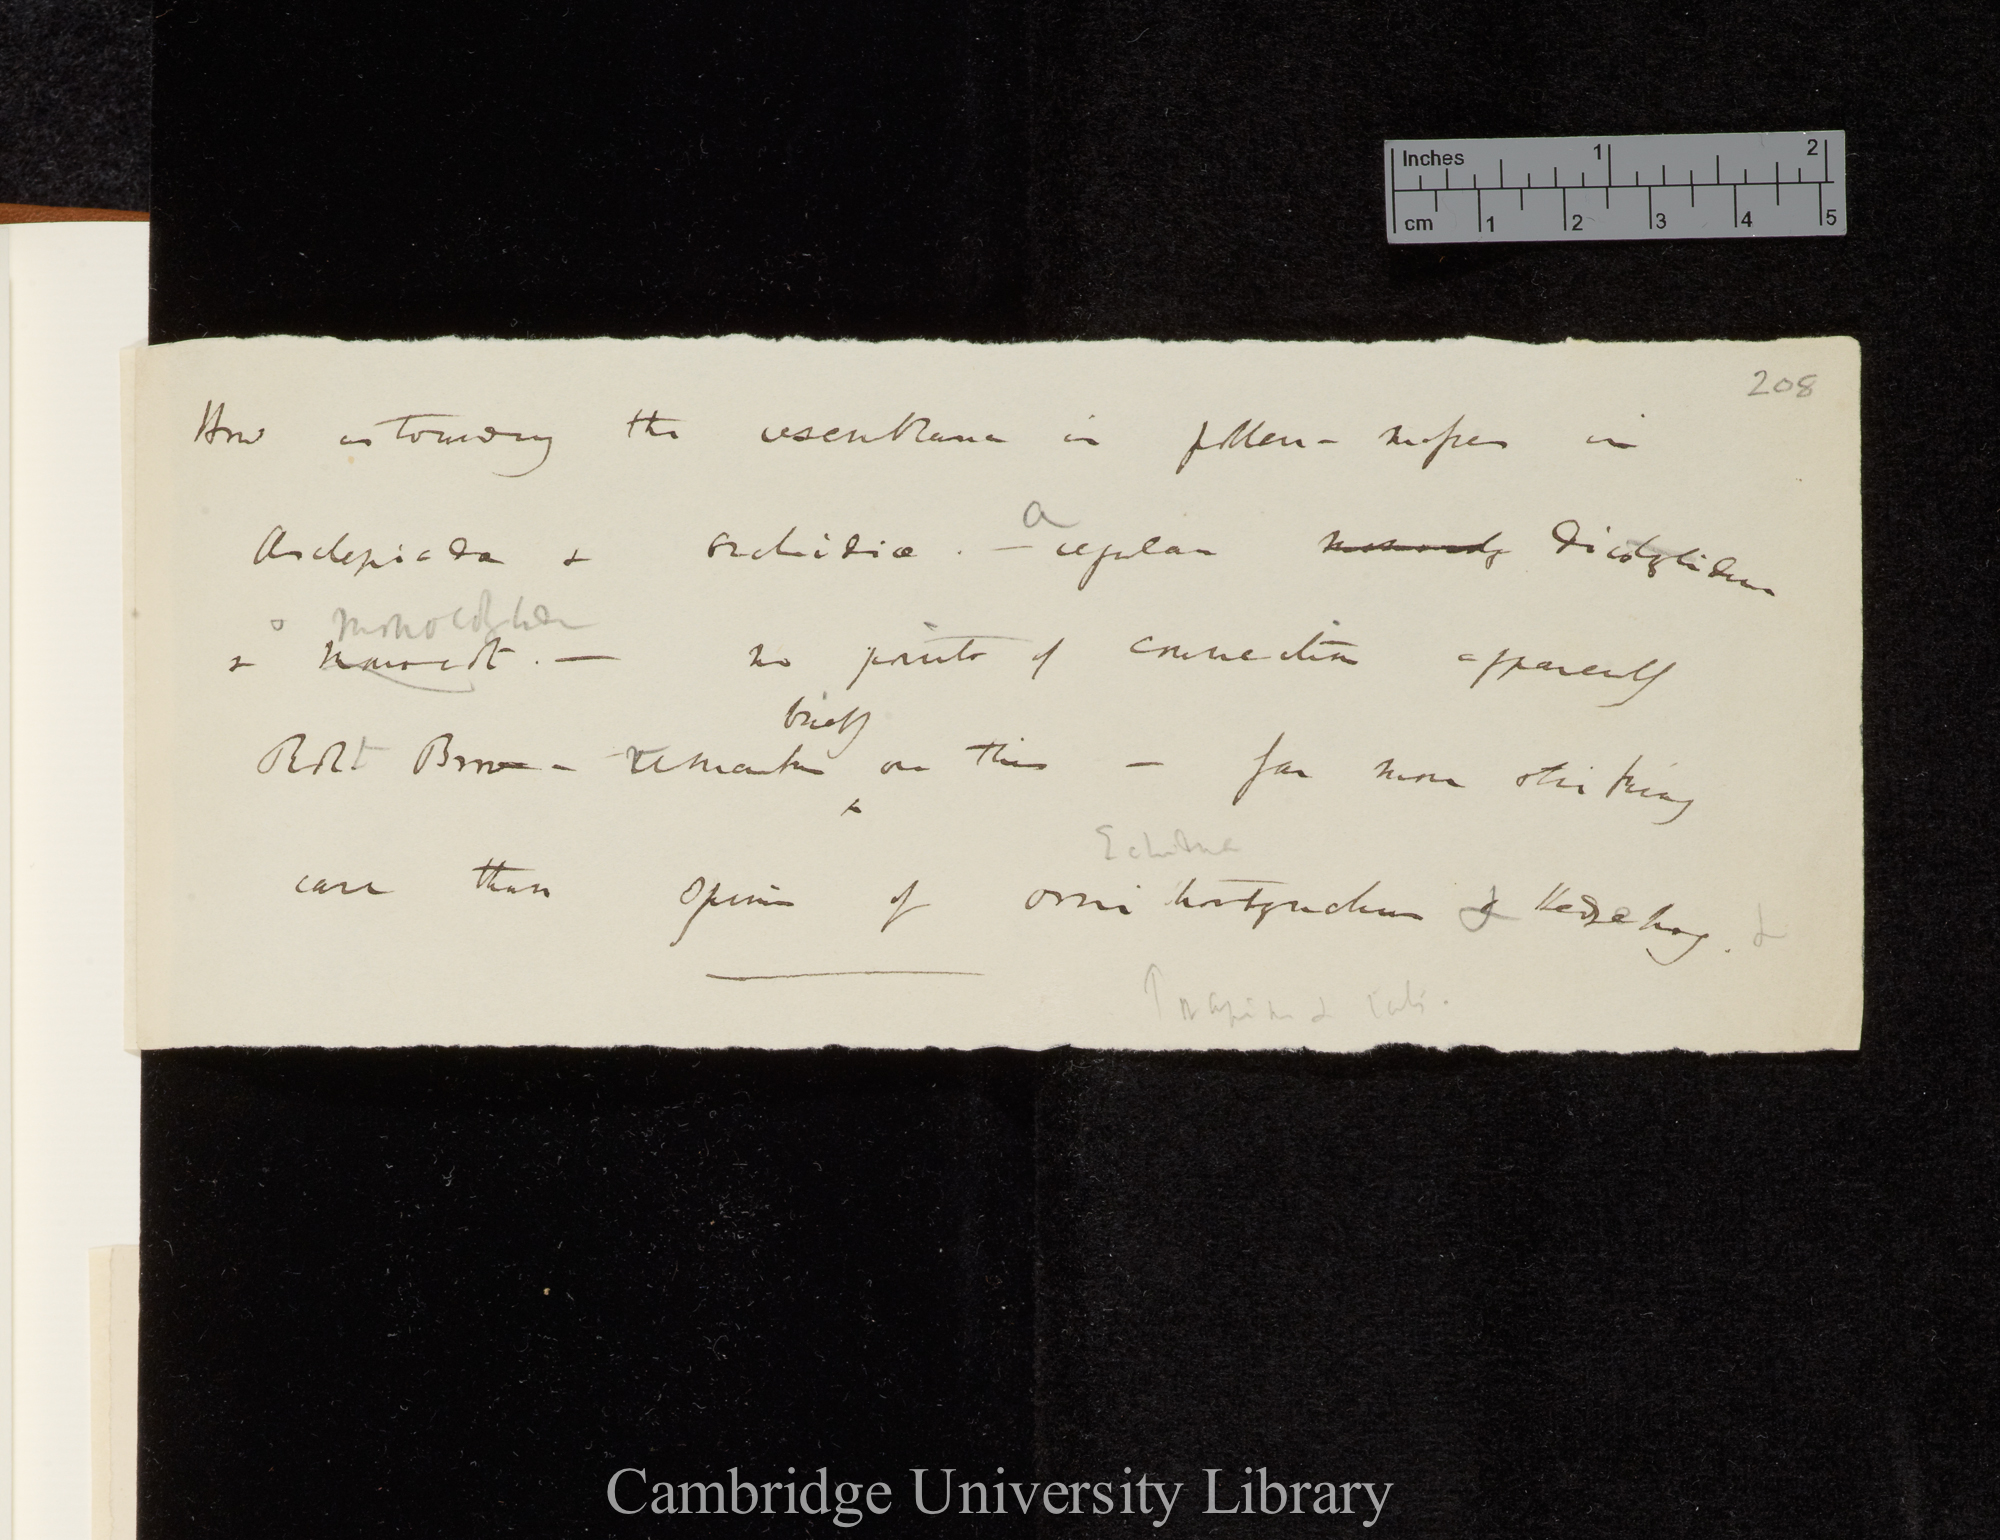 Inches 1 2
cm 1 2 3 4 5
208
How astounding the resemblance in pollen-masses in
Asclepiadæ & orchidiæ. — a regular Dicotyledon
monocotyledon
& monocot. — no points of connection apparently
briefly
Robt Brown remarks on this — far more striking
Echidna
case than spines of ornithorhynchus & Hedgehog. &
Cambridge University Library